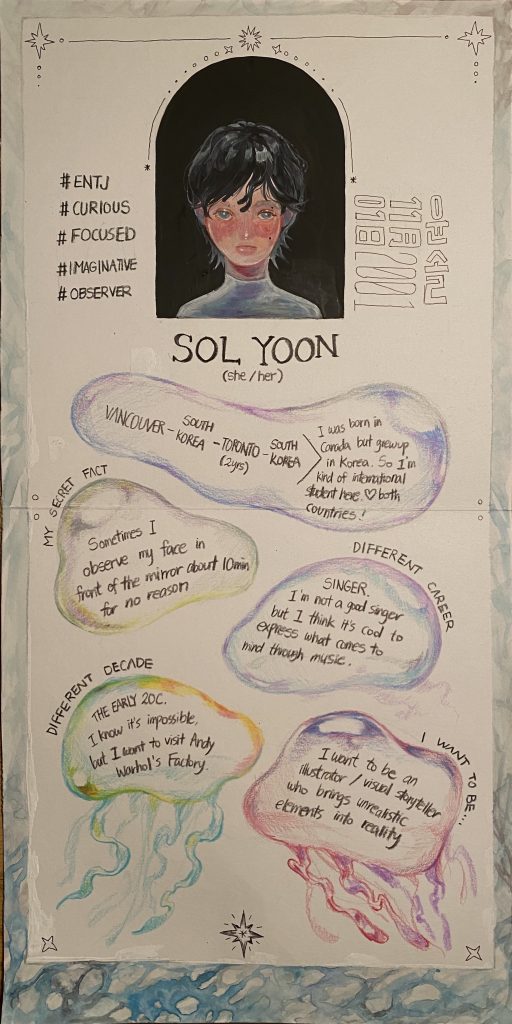 #ENTJ
#CURIOUS
#FOCUSED
#IMAGINATIVE
#OBSERVER
SOL YOON
(she/her)
VANCOUVER - SOUTH KOREA - TORONTO (2yrs) - SOUTH KOREA
I was born in
Canada but grew up
in Korea. So I'm
kind of international
student here. ♡ both
countries!
MY SECRET FACT
Sometimes I
observe my face in
front of the mirror about 10min
for no reason
DIFFERENT CAREER
SINGER.
I'm not a good singer
but I think it's cool to
express what comes to
mind through music.
DIFFERENT DECADE
THE EARLY 20C.
I know it's impossible,
but I want to visit Andy
Warhol's Factory.
I WANT TO BE...
I want to be an
illustrator / visual storyteller
who brings unrealistic
elements into reality